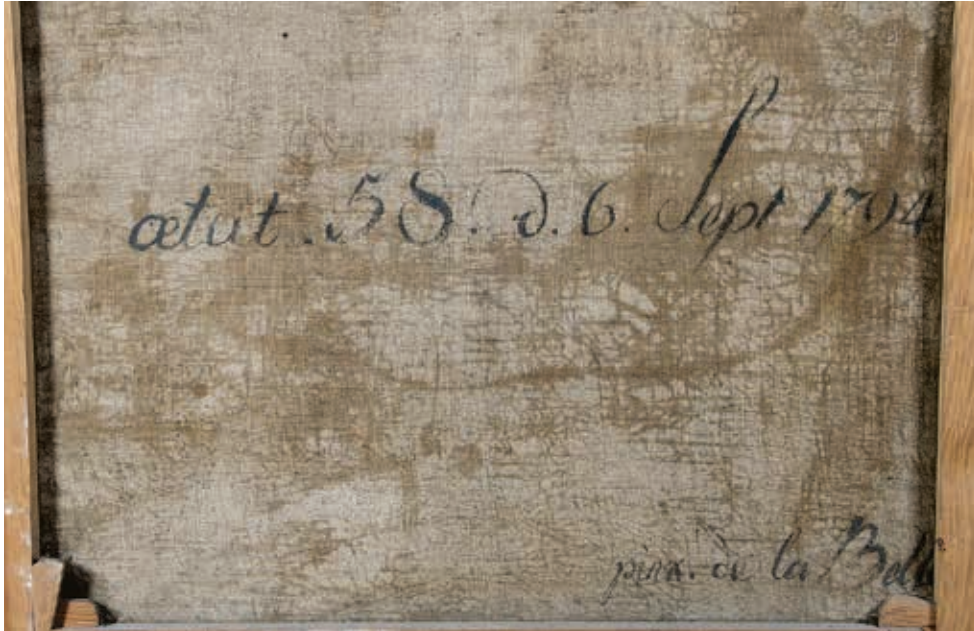 ætat. 58. d. 6. Sept 1794
pinx. de la Bell